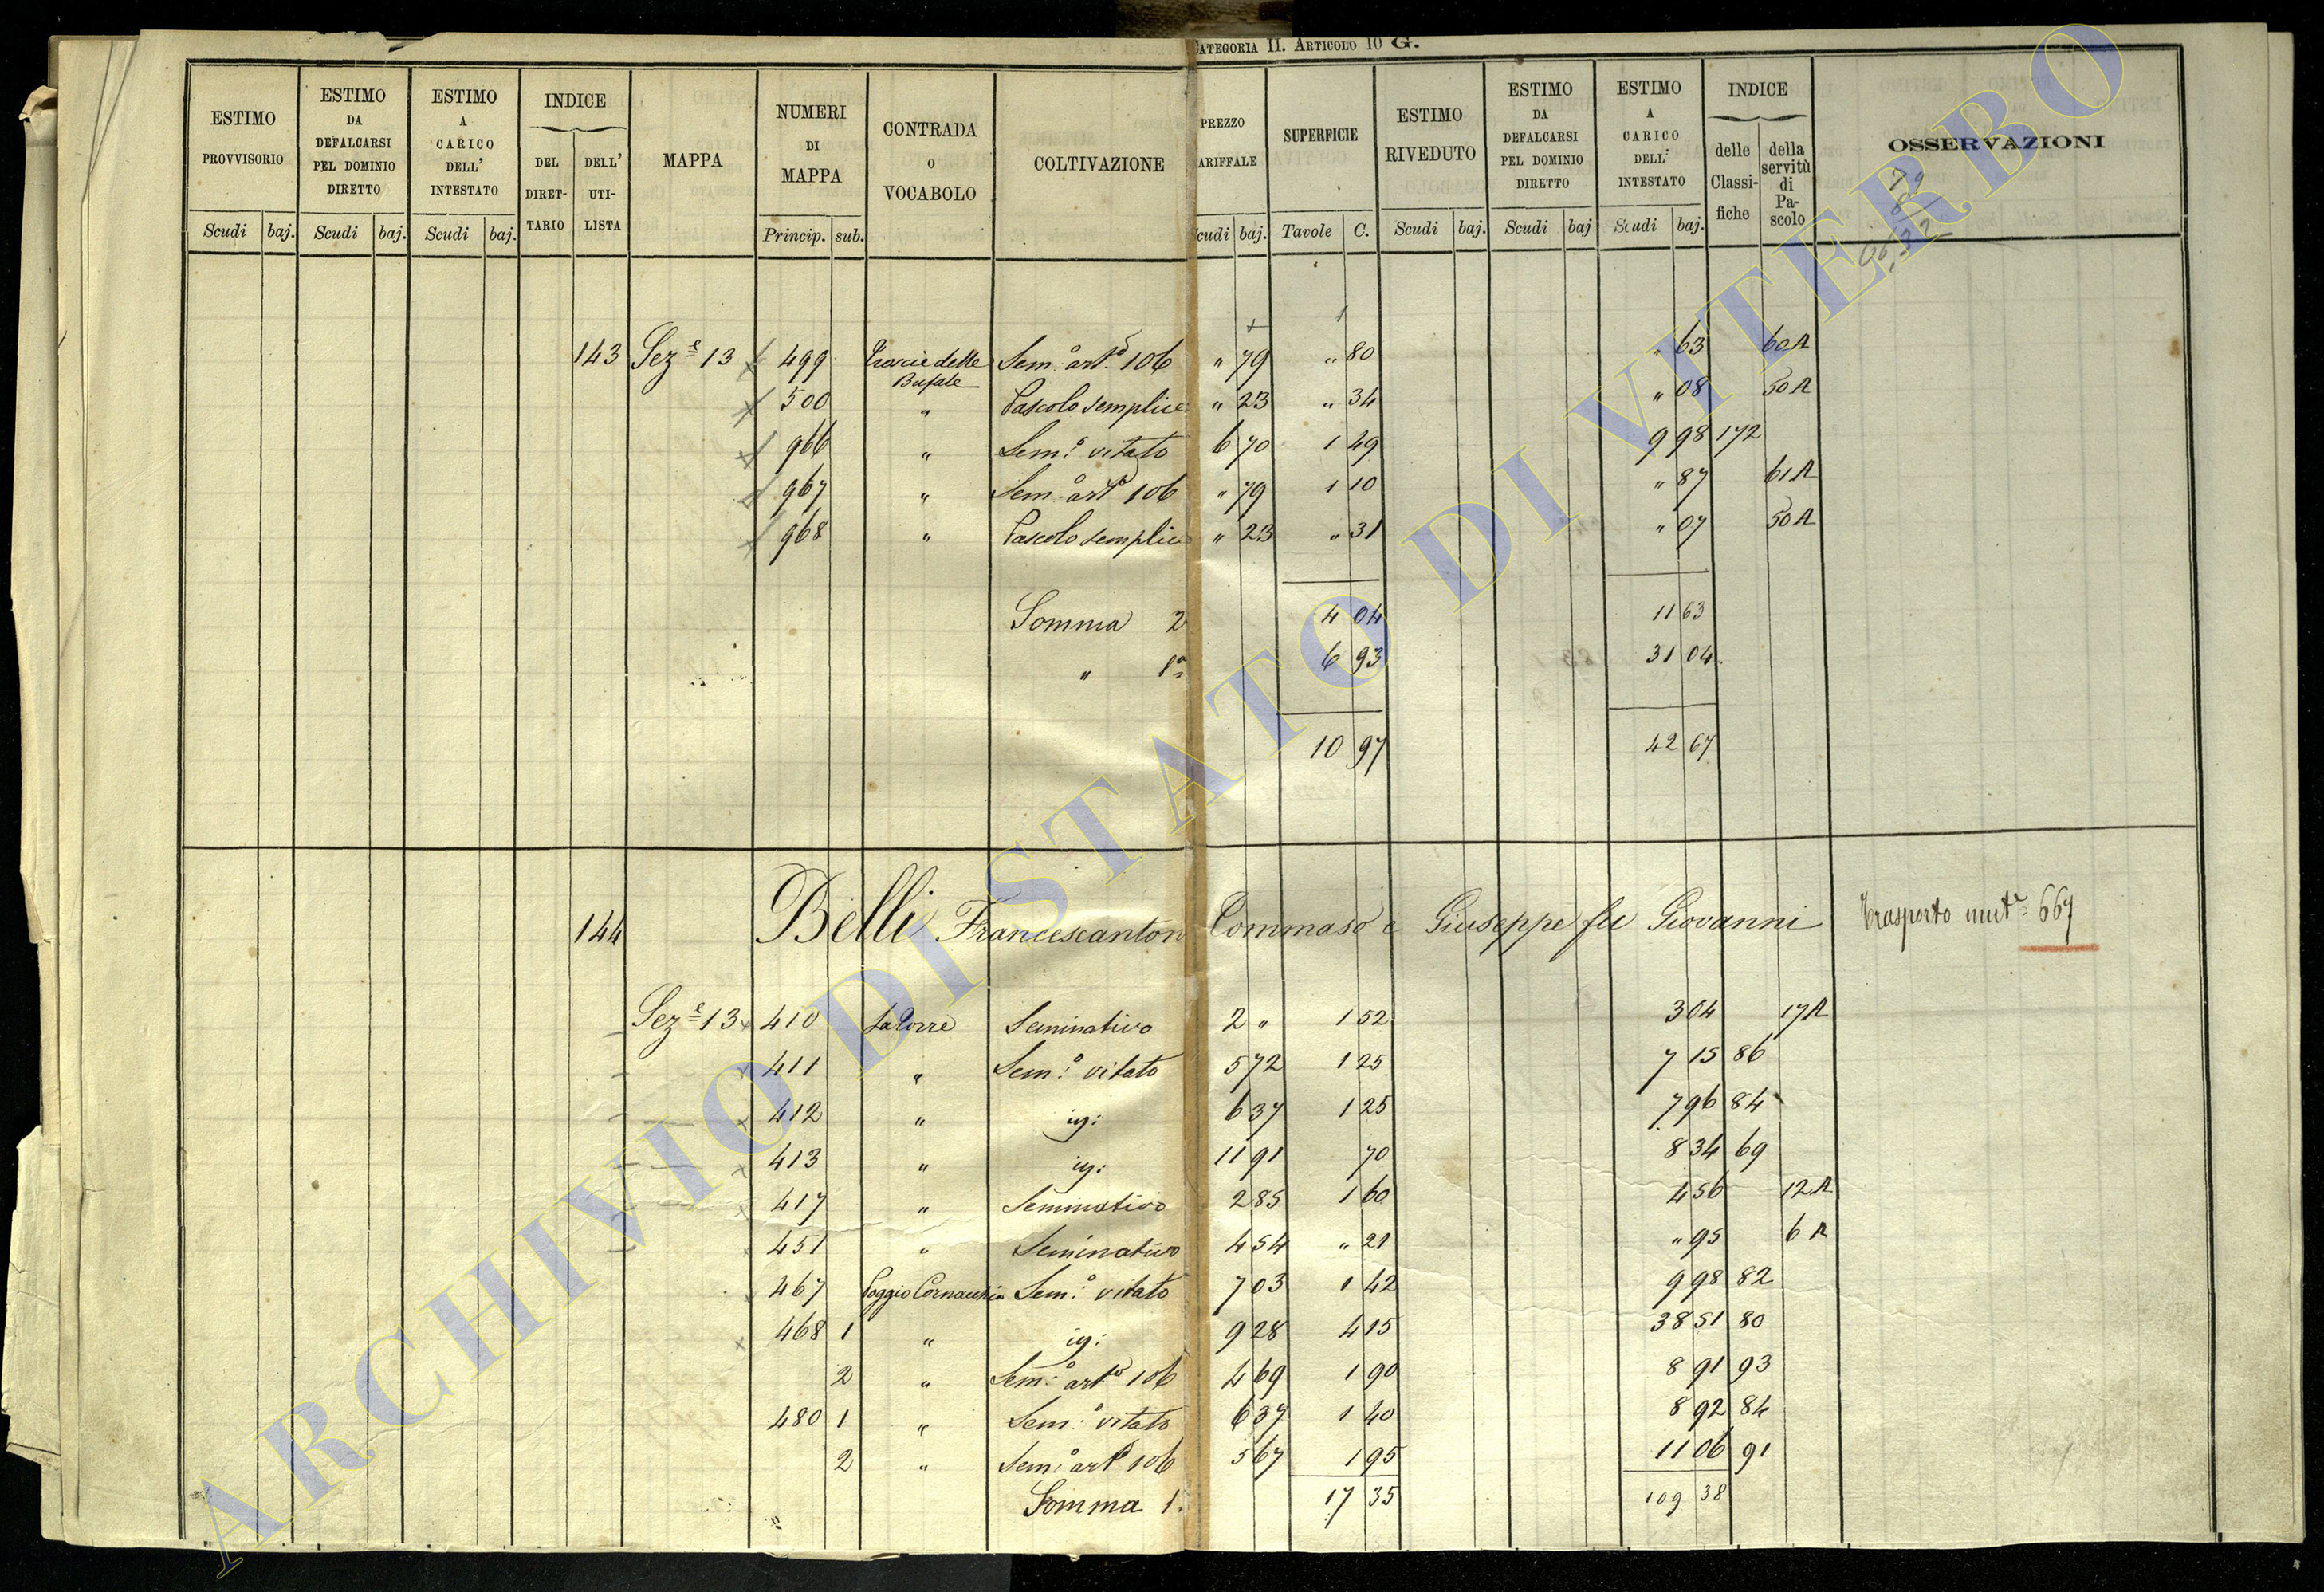 CATEGORIA II. ARTICOLO 10 G.
ESTIMO PROVVISORIO Scudi baj.
ESTIMO DA DEFALCARSI PEL DOMINIO DIRETTO Scudi baj.
ESTIMO A CARICO DELL' INTESTATO Scudi baj.
INDICE DEL DIRETTARIO DELL' UTILISTA
MAPPA
NUMERI DI MAPPA Princip. sub.
CONTRADA O VOCABOLO
COLTIVAZIONE
PREZZO ARIFFALE cudi baj.
SUPERFICIE Tavole C.
ESTIMO RIVEDUTO Scudi baj.
ESTIMO DA DEFALCARSI PEL DOMINIO DIRETTO Scudi baj
ESTIMO A CARICO DELL' INTESTATO Scudi baj.
INDICE delle Classifiche della servitù di Pascolo
OSSERVAZIONI
79
8
0632
143 Sez.e 13 499 Troscie delle Bufale Sem.o art.o 106 " 79 " 80 " 63 60A
500 " Pascolo semplice " 23 " 34 " 08 50A
966 " Sem.o vitato 6 70 1 49 9 98 172
967 " Sem.o art.o 106 " 79 1 10 " 87 61A
968 " Pascolo semplice " 23 " 31 " 07 50A
Somma 2 4 04 11 63
" 1a 6 93 31 04
10 97 42 67
144 Belli Francescanton Tommaso e Giuseppe fu Giovanni Trasporto mut.e 667
Sez.e 13 410 La Torre Seminativo 2 " 1 52 3 04 17A
411 " Sem.o vitato 5 72 1 25 7 15 86
412 " id: 6 37 1 25 7 96 84
413 " id: 11 91 70 8 34 69
417 " Seminativo 2 85 1 60 4 56 12A
451 " Seminativo 4 54 " 21 " 95 6A
467 Poggio Cornacchia Sem.o vitato 7 03 1 42 9 98 82
468 1 " id: 9 28 4 15 38 51 80
2 " Sem.o art.o 106 4 69 1 90 8 91 93
480 1 " Sem.o vitato 6 37 1 40 8 92 84
2 " Sem.o art.o 106 5 67 1 95 11 06 91
Somma 1. 17 35 109 38
ARCHIVIO DI STATO DI VITERBO